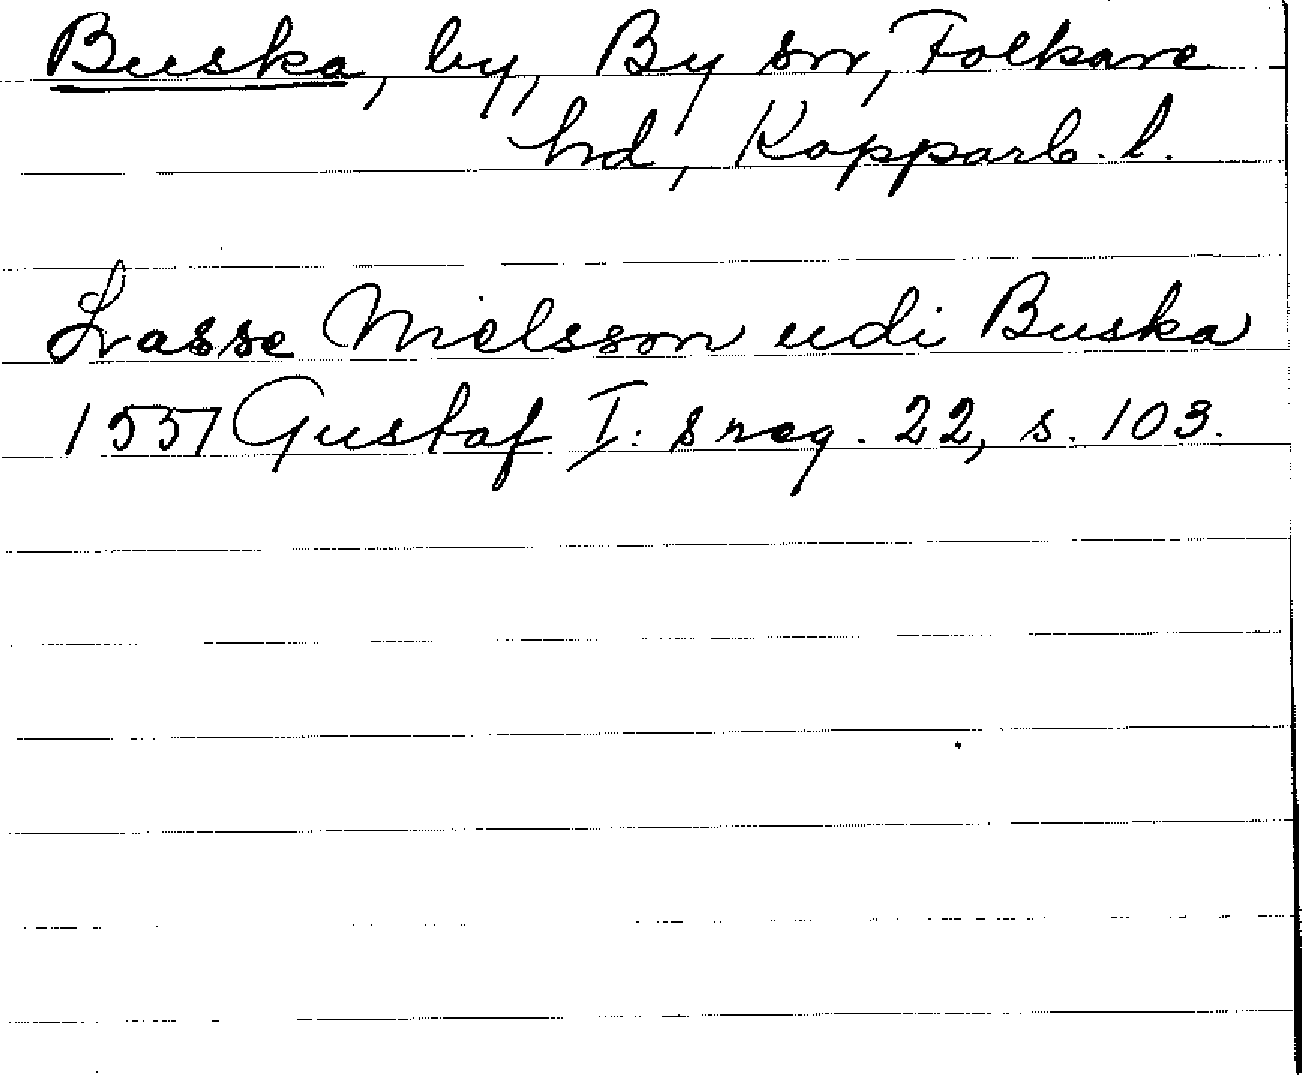 Buska, by, By sn, Folkare
hd, Kopparb. l.
Lasse Nielsson udi Buska
1557 Gustaf I: s reg. 22, s. 103.